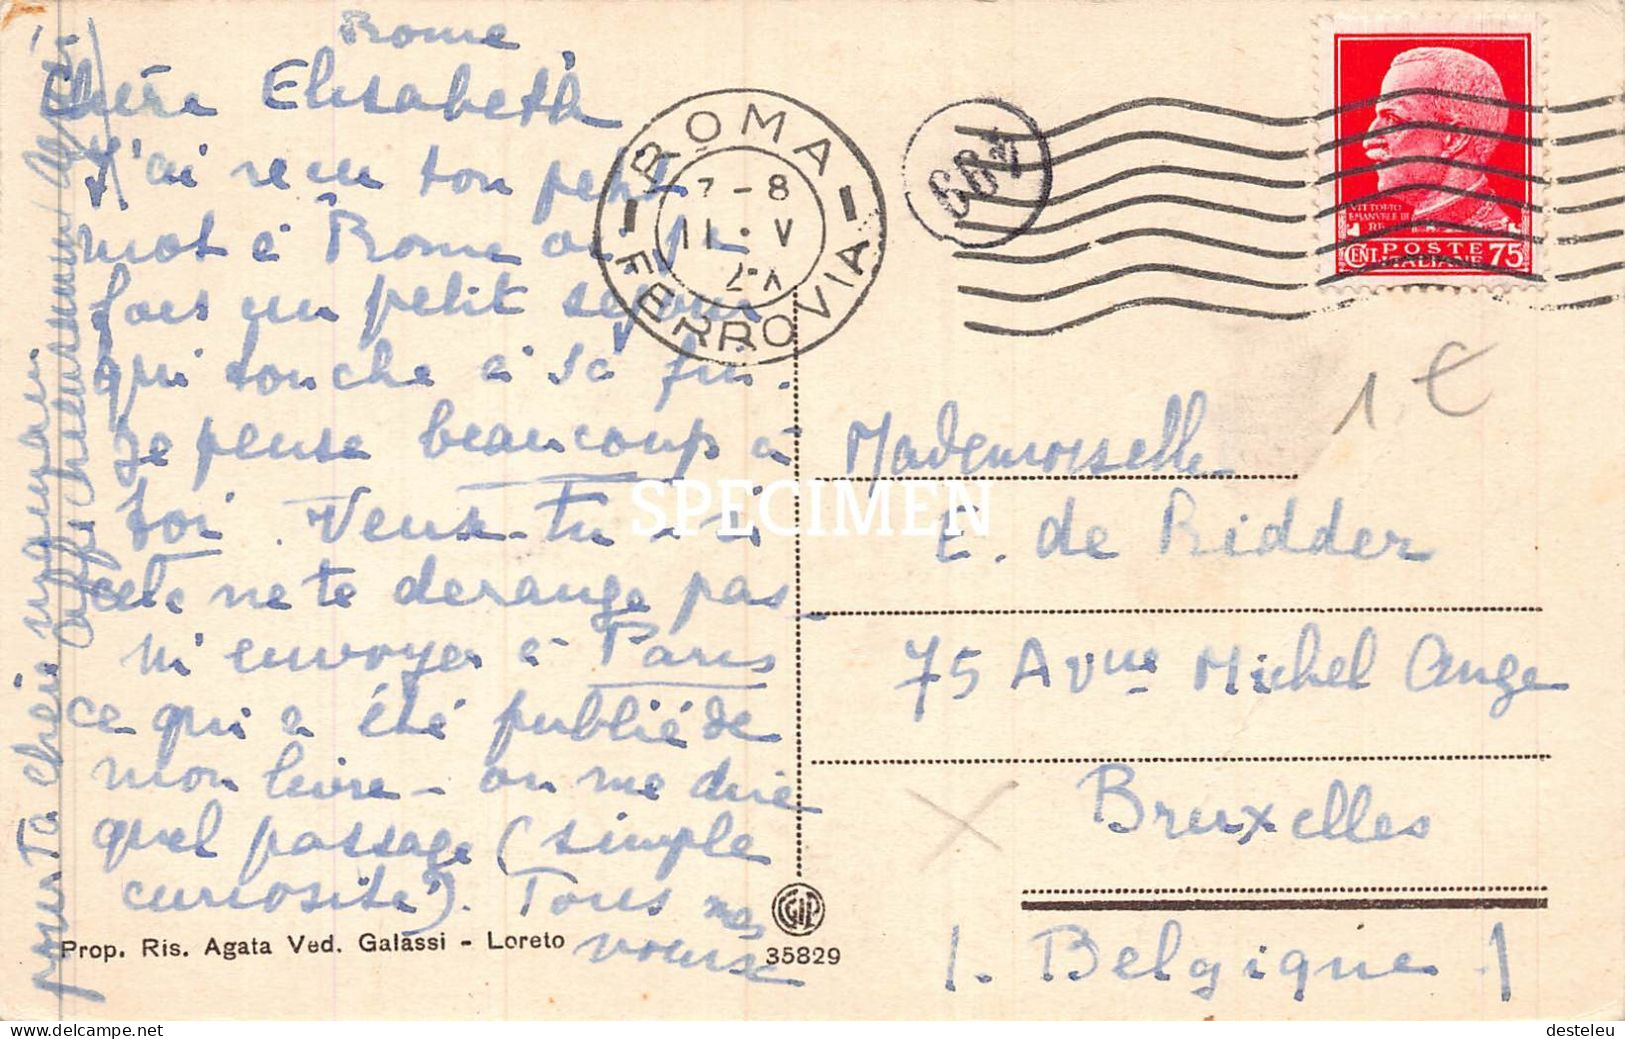 Rome
Chère Elisabeth
J'ai reçu ton petit
mot à Rome où je
fais un petit séjour
qui touche à sa fin.
Je pense beaucoup à
toi. Veux-tu si
cela ne te derange pas
m'envoyer à Paris
ce qui a été publié de
mon livre - ou me dire
quel passage (simple
curiosité). Tous mes
voeux
pour Ta chère maman
Affectueusement
ROMA
FERROVIA
7-8
11·V
VITTORIO
EMANVELE III
RE
POSTE
ITALIANE
CENT 75
1 €
SPECIMEN
Mademoiselle
E. de Ridder
75 Avnue Michel Ange
Bruxelles
(. Belgique )
Prop. Ris. Agata Ved. Galassi - Loreto
35829
http://www.delcampe.net
desteleu